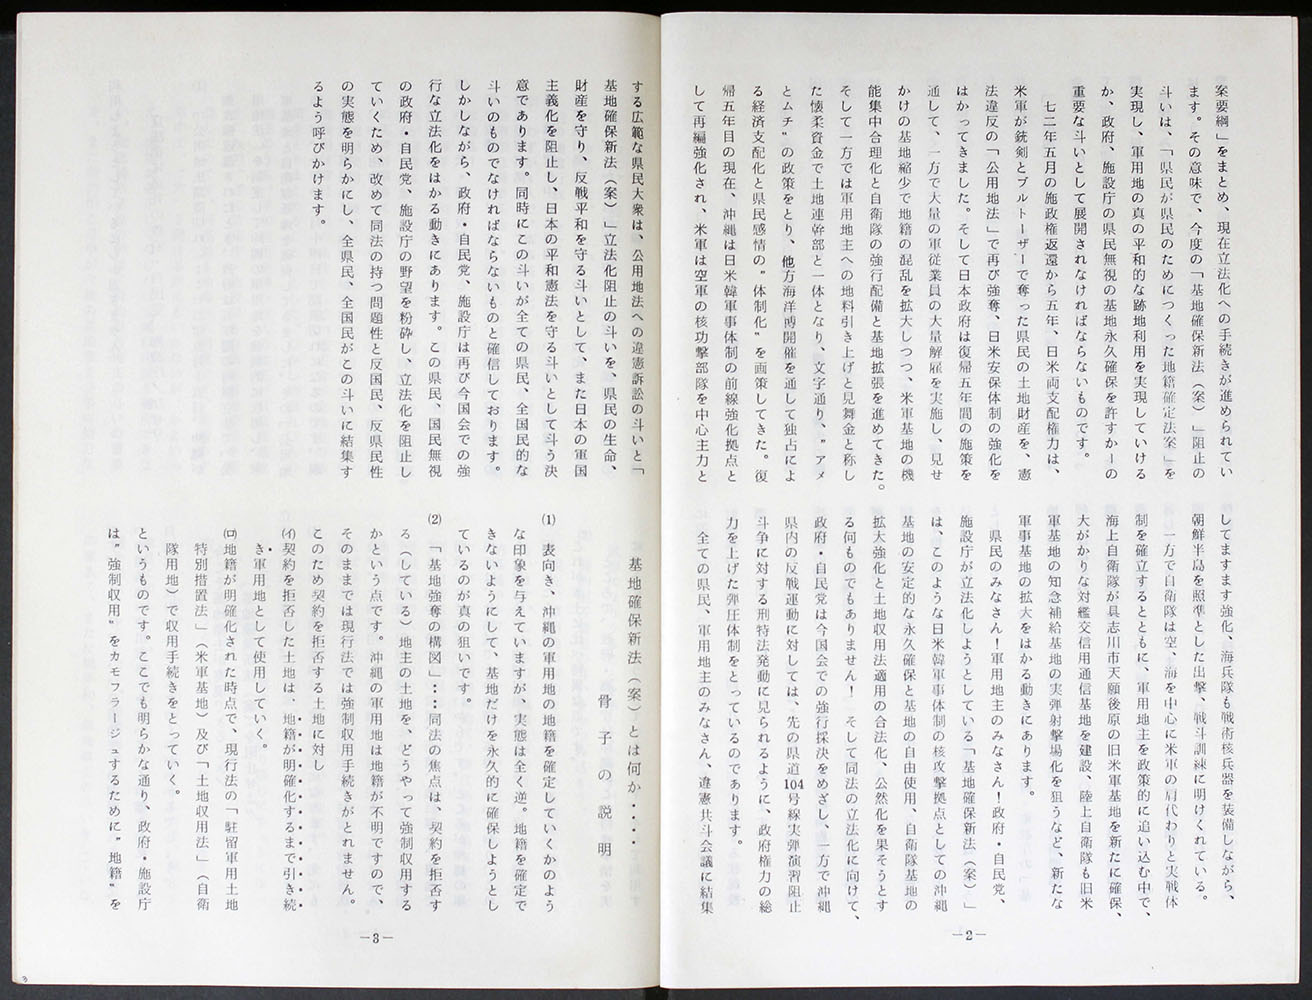 案要綱」をまとめ、現在立法化への手続きが進められてい
ます。その意味で、今度の「基地確保新法（案）」阻止の
斗いは、「県民が県民のためにつくった地籍確定法案」を
実現し、軍用地の真の平和的な跡地利用を実現していける
か、政府、施設庁の県民無視の基地永久確保を許すか一の
重要な斗いとして展開されなければならないものです。
七二年五月の施政権返還から五年、日米両支配権力は、
米軍が銃剣とブルトーザーで奪った県民の土地財産を、憲
法違反の「公用地法」で再び強奪、日米安保体制の強化を
はかってきました。そして日本政府は復帰五年間の施策を
通して、一方で大量の軍従業員の大量解雇を実施し、見せ
かけの基地縮少で地籍の混乱を拡大しつつ、米軍基地の機
能集中合理化と自衛隊の強行配備と基地拡張を進めてきた。
そして一方では軍用地主への地料引き上げと見舞金と称し
た懐柔資金で土地連幹部と一体となり、文字通り、〝アメ
とムチ〟の政策をとり、他方海洋博開催を通して独占によ
る経済支配化と県民感情の〝体制化〟を画策してきた。復
帰五年目の現在、沖縄は日米韓軍事体制の前線強化拠点と
して再編強化され、米軍は空軍の核功撃部隊を中心主力と
してますます強化、海兵隊も戦術核兵器を装備しながら、
朝鮮半島を照準とした出撃、戦斗訓練に明けくれている。
し、一方で自衛隊は空、海を中心に米軍の肩代わりと実戦体
制を確立するとともに、軍用地主を政策的に追い込む中で、
海上自衛隊が具志川市天願後原の旧米軍基地を新たに確保、
大がかりな対艦交信用通信基地を建設、陸上自衛隊も旧米
軍基地の知念補給基地の実弾射撃場化を狙うなど、新たな
軍事基地の拡大をはかる動きにあります。
県民のみなさん！軍用地主のみなさん！政府・自民党、
施設庁が立法化しようとしている「基地確保新法（案）」
は、このような日米韓軍事体制の核攻撃拠点としての沖縄
基地の安定的な永久確保と基地の自由使用、自衛隊基地の
拡大強化と土地収用法適用の合法化、公然化を果そうとす
る何ものでもありません！　そして同法の立法化に向けて、
政府・自民党は今国会での強行採決をめざし、一方で沖縄
県内の反戦運動に対しては、先の県道104号線実弾演習阻止
斗争に対する刑特法発動に見られるように、政府権力の総
力を上げた弾圧体制をとっているのであります。
全ての県民、軍用地主のみなさん、違憲共斗会議に結集
―2―
する広範な県民大衆は、公用地法への違憲訴訟の斗いと「
基地確保新法（案）」立法化阻止の斗いを、県民の生命、
財産を守り、反戦平和を守る斗いとして、また日本の軍国
主義化を阻止し、日本の平和憲法を守る斗いとして斗う決
意であります。同時にこの斗いが全ての県民、全国民的な
斗いのものでなければならないものと確信しております。
しかしながら、政府・自民党、施設庁は再び今国会での強
行な立法化をはかる動きにあります。この県民、国民無視
の政府・自民党、施設庁の野望を粉砕し、立法化を阻止し
ていくため、改めて同法の持つ問題性と反国民、反県民性
の実態を明らかにし、全県民、全国民がこの斗いに結集す
るよう呼びかけます。
基地確保新法（案）とは何か・・・・
骨子の説明
(1)　表向き、沖縄の軍用地の地籍を確定していくかのよう
な印象を与えていますが、実態は全く逆。地籍を確定で
きないようにして、基地だけを永久的に確保しようとし
ているのが真の狙いです。
(2)　「基地強奪の構図」・・・同法の焦点は、契約を拒否す
る（している）地主の土地を、どうやって強制収用する
かという点です。沖縄の軍用地は地籍が不明ですので、
そのままでは現行法では強制収用手続きがとれません。
このため契約を拒否する土地に対し
(イ)契約を拒否した土地は、地籍が明確化するまで引き続
き軍用地として使用していく。
(ロ)地籍が明確化された時点で、現行法の「駐留軍用土地
特別措置法」（米軍基地）及び「土地収用法」（自衛
隊用地）で収用手続きをとっていく。
というものです。ここでも明らかな通り、政府・施設庁
は〝強制収用〟をカモフラージュするために〝地籍〟を
―3―
3